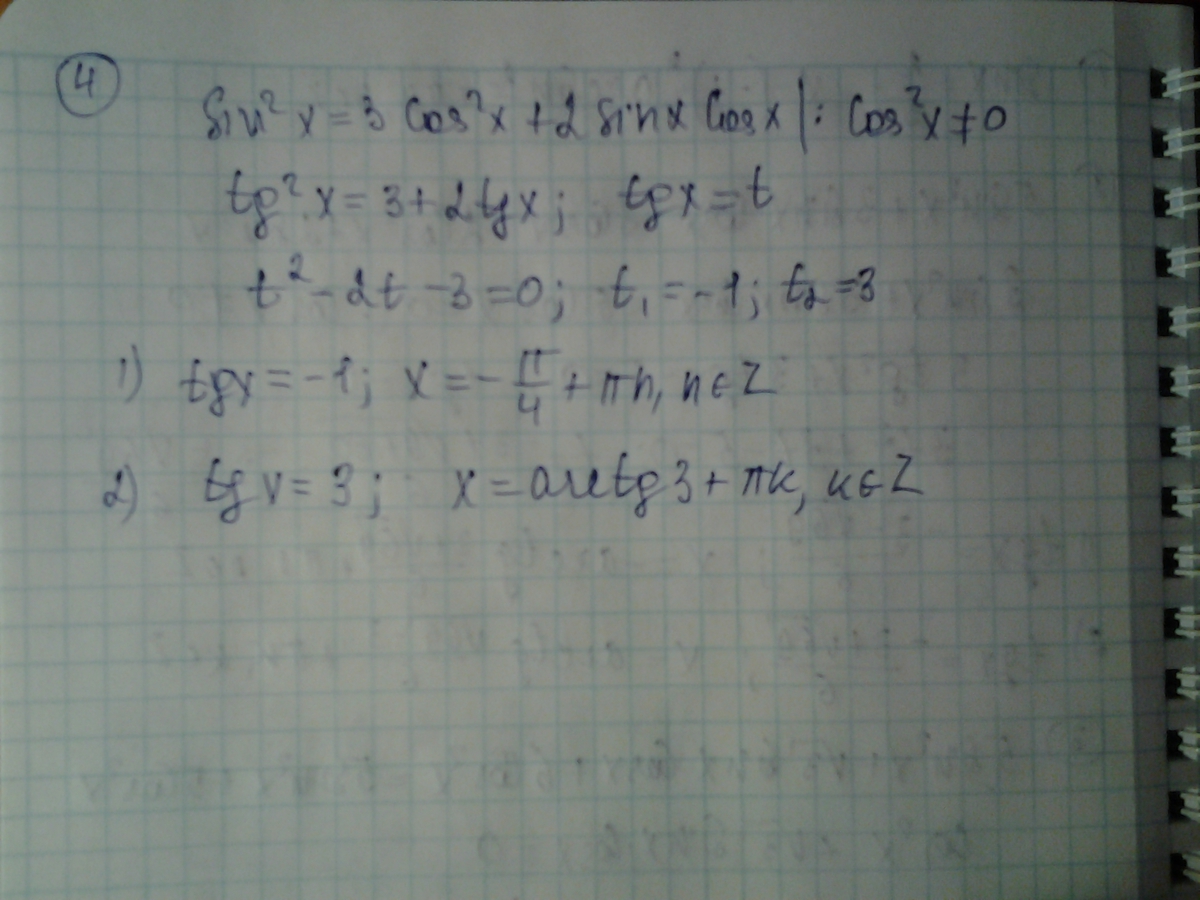 4
Sin²x = 3 Cos²x + 2 Sinx Cosx | : Cos²x ≠ 0
tg²x = 3 + 2tgx; tgx = t
t² - 2t - 3 = 0; t₁ = -1; t₂ = 3
1) tgx = -1; x = -π/4 + πn, n ∈ Z
2) tgx = 3; x = arctg3 + πk, k ∈ Z